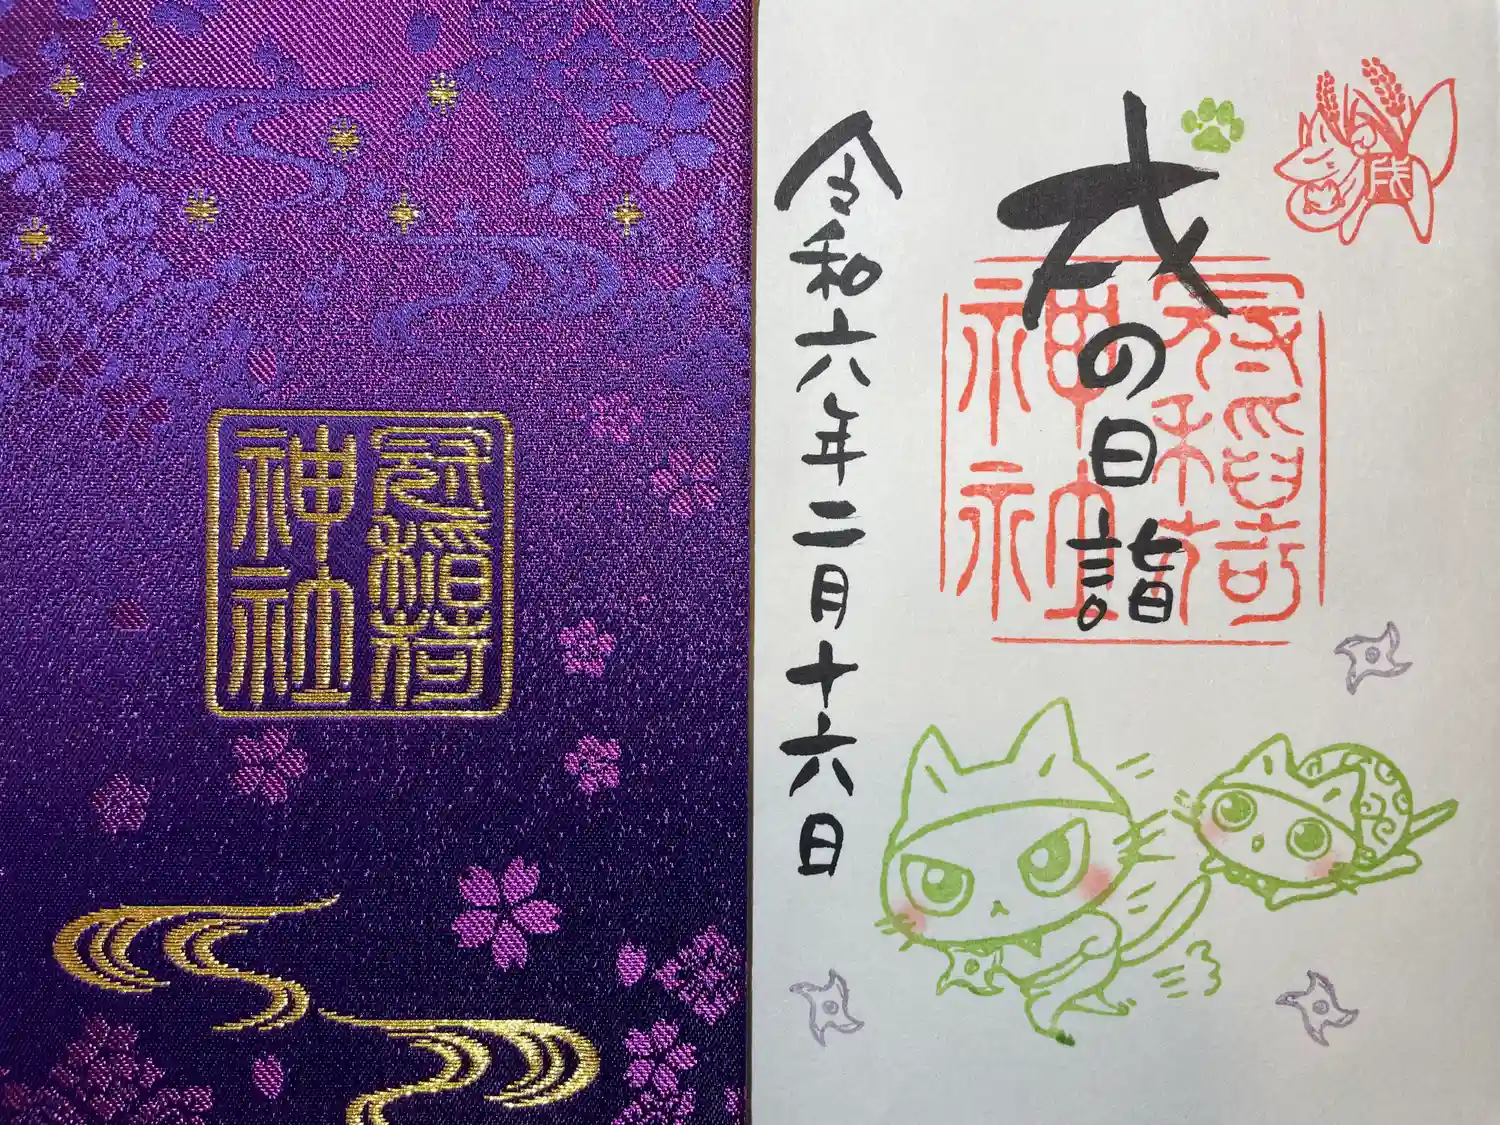 冠稲荷
神社
戌
戌の日詣
冠稲荷
神社
令和六年二月十六日